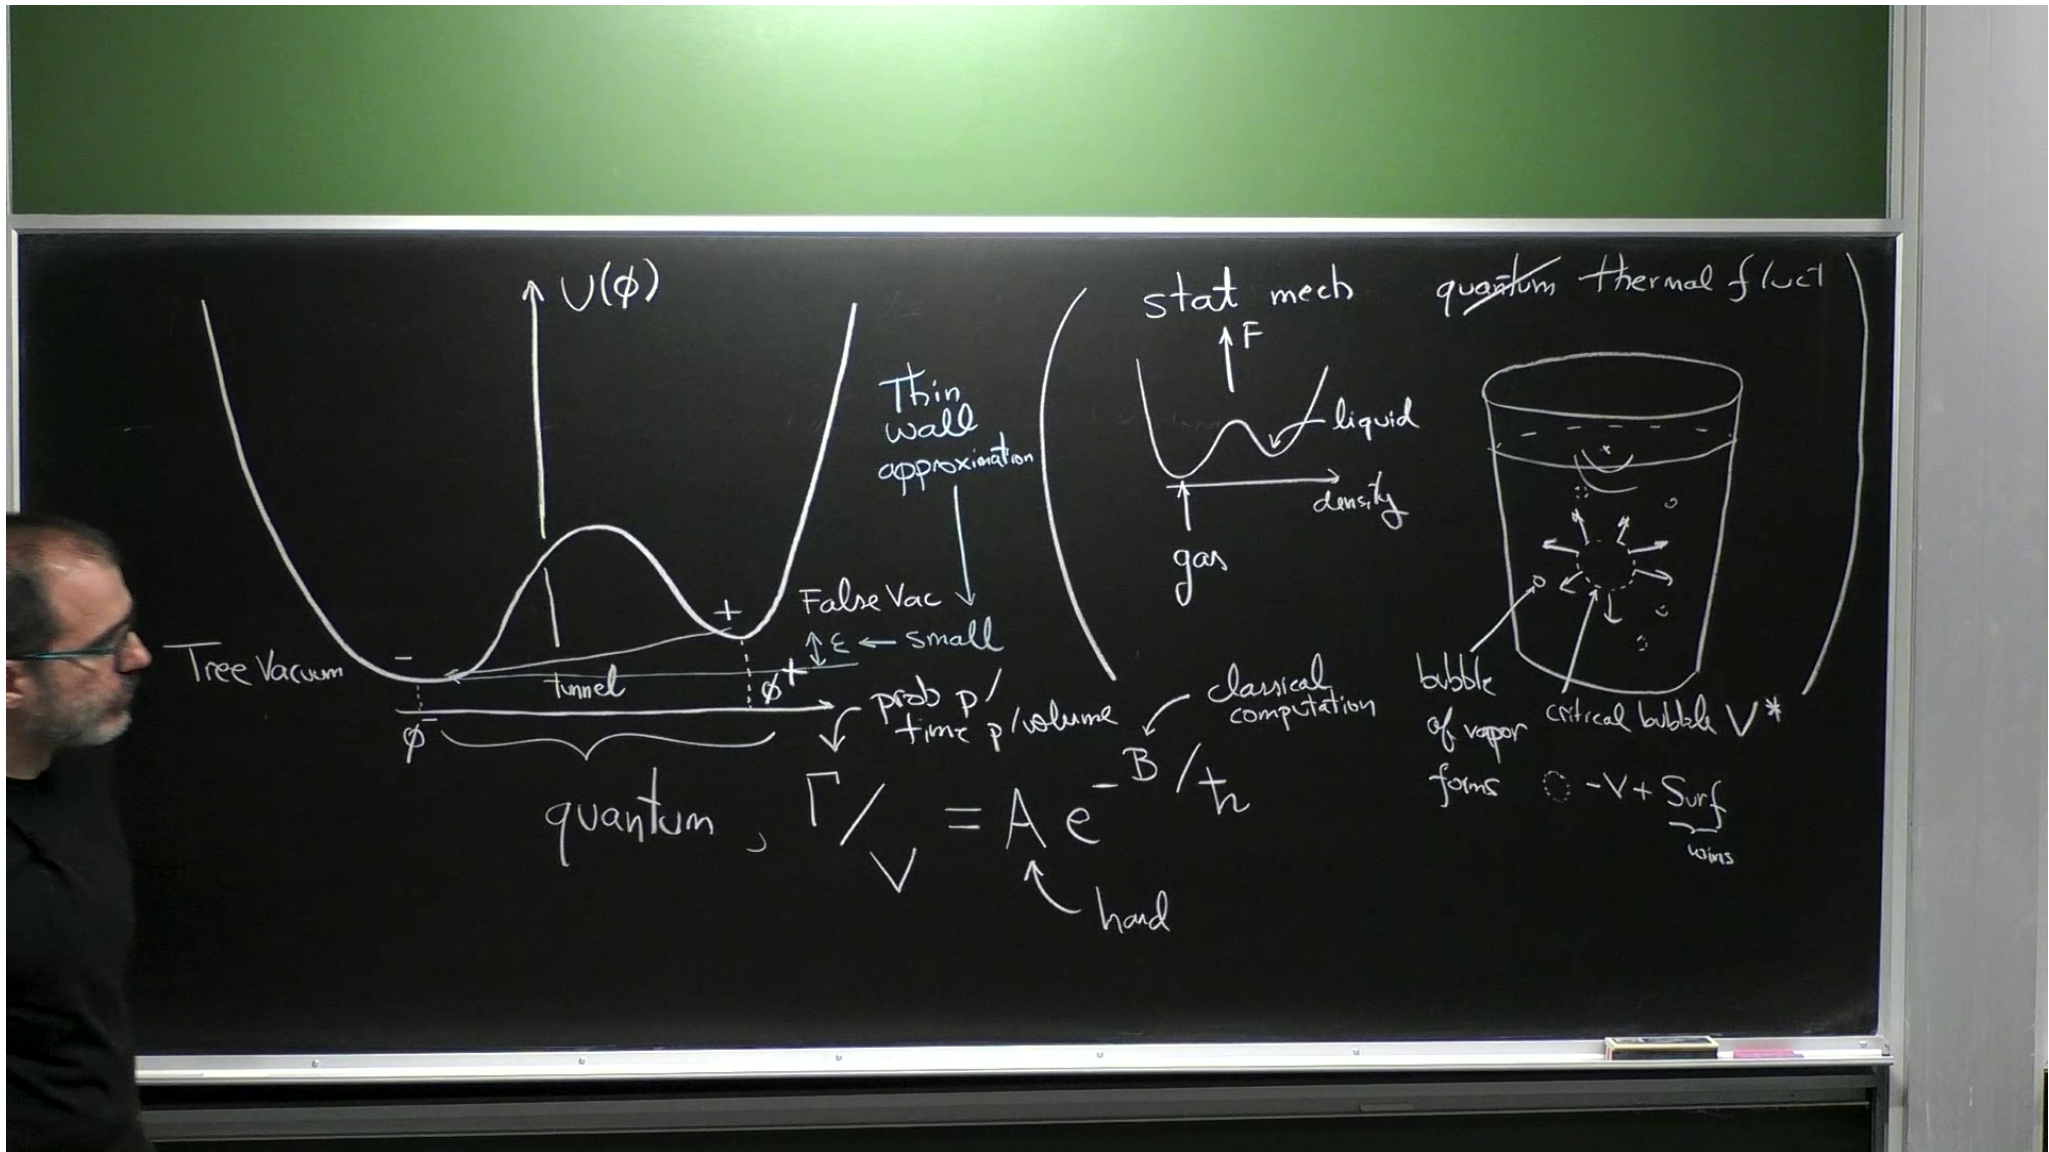 U(ϕ)
Thin
wall
approximation
+
False Vac
ε ← small
Tree Vacuum
-
tunnel
ϕ⁺
ϕ⁻
prob p/
time p/volume
classical
computation
quantum, Γ/V = A e^{-B/ħ}
hard
stat mech
quantum thermal fluct
F
liquid
density
gas
bubble
of vapor
forms
critical bubble V*
-V + Surf
wins